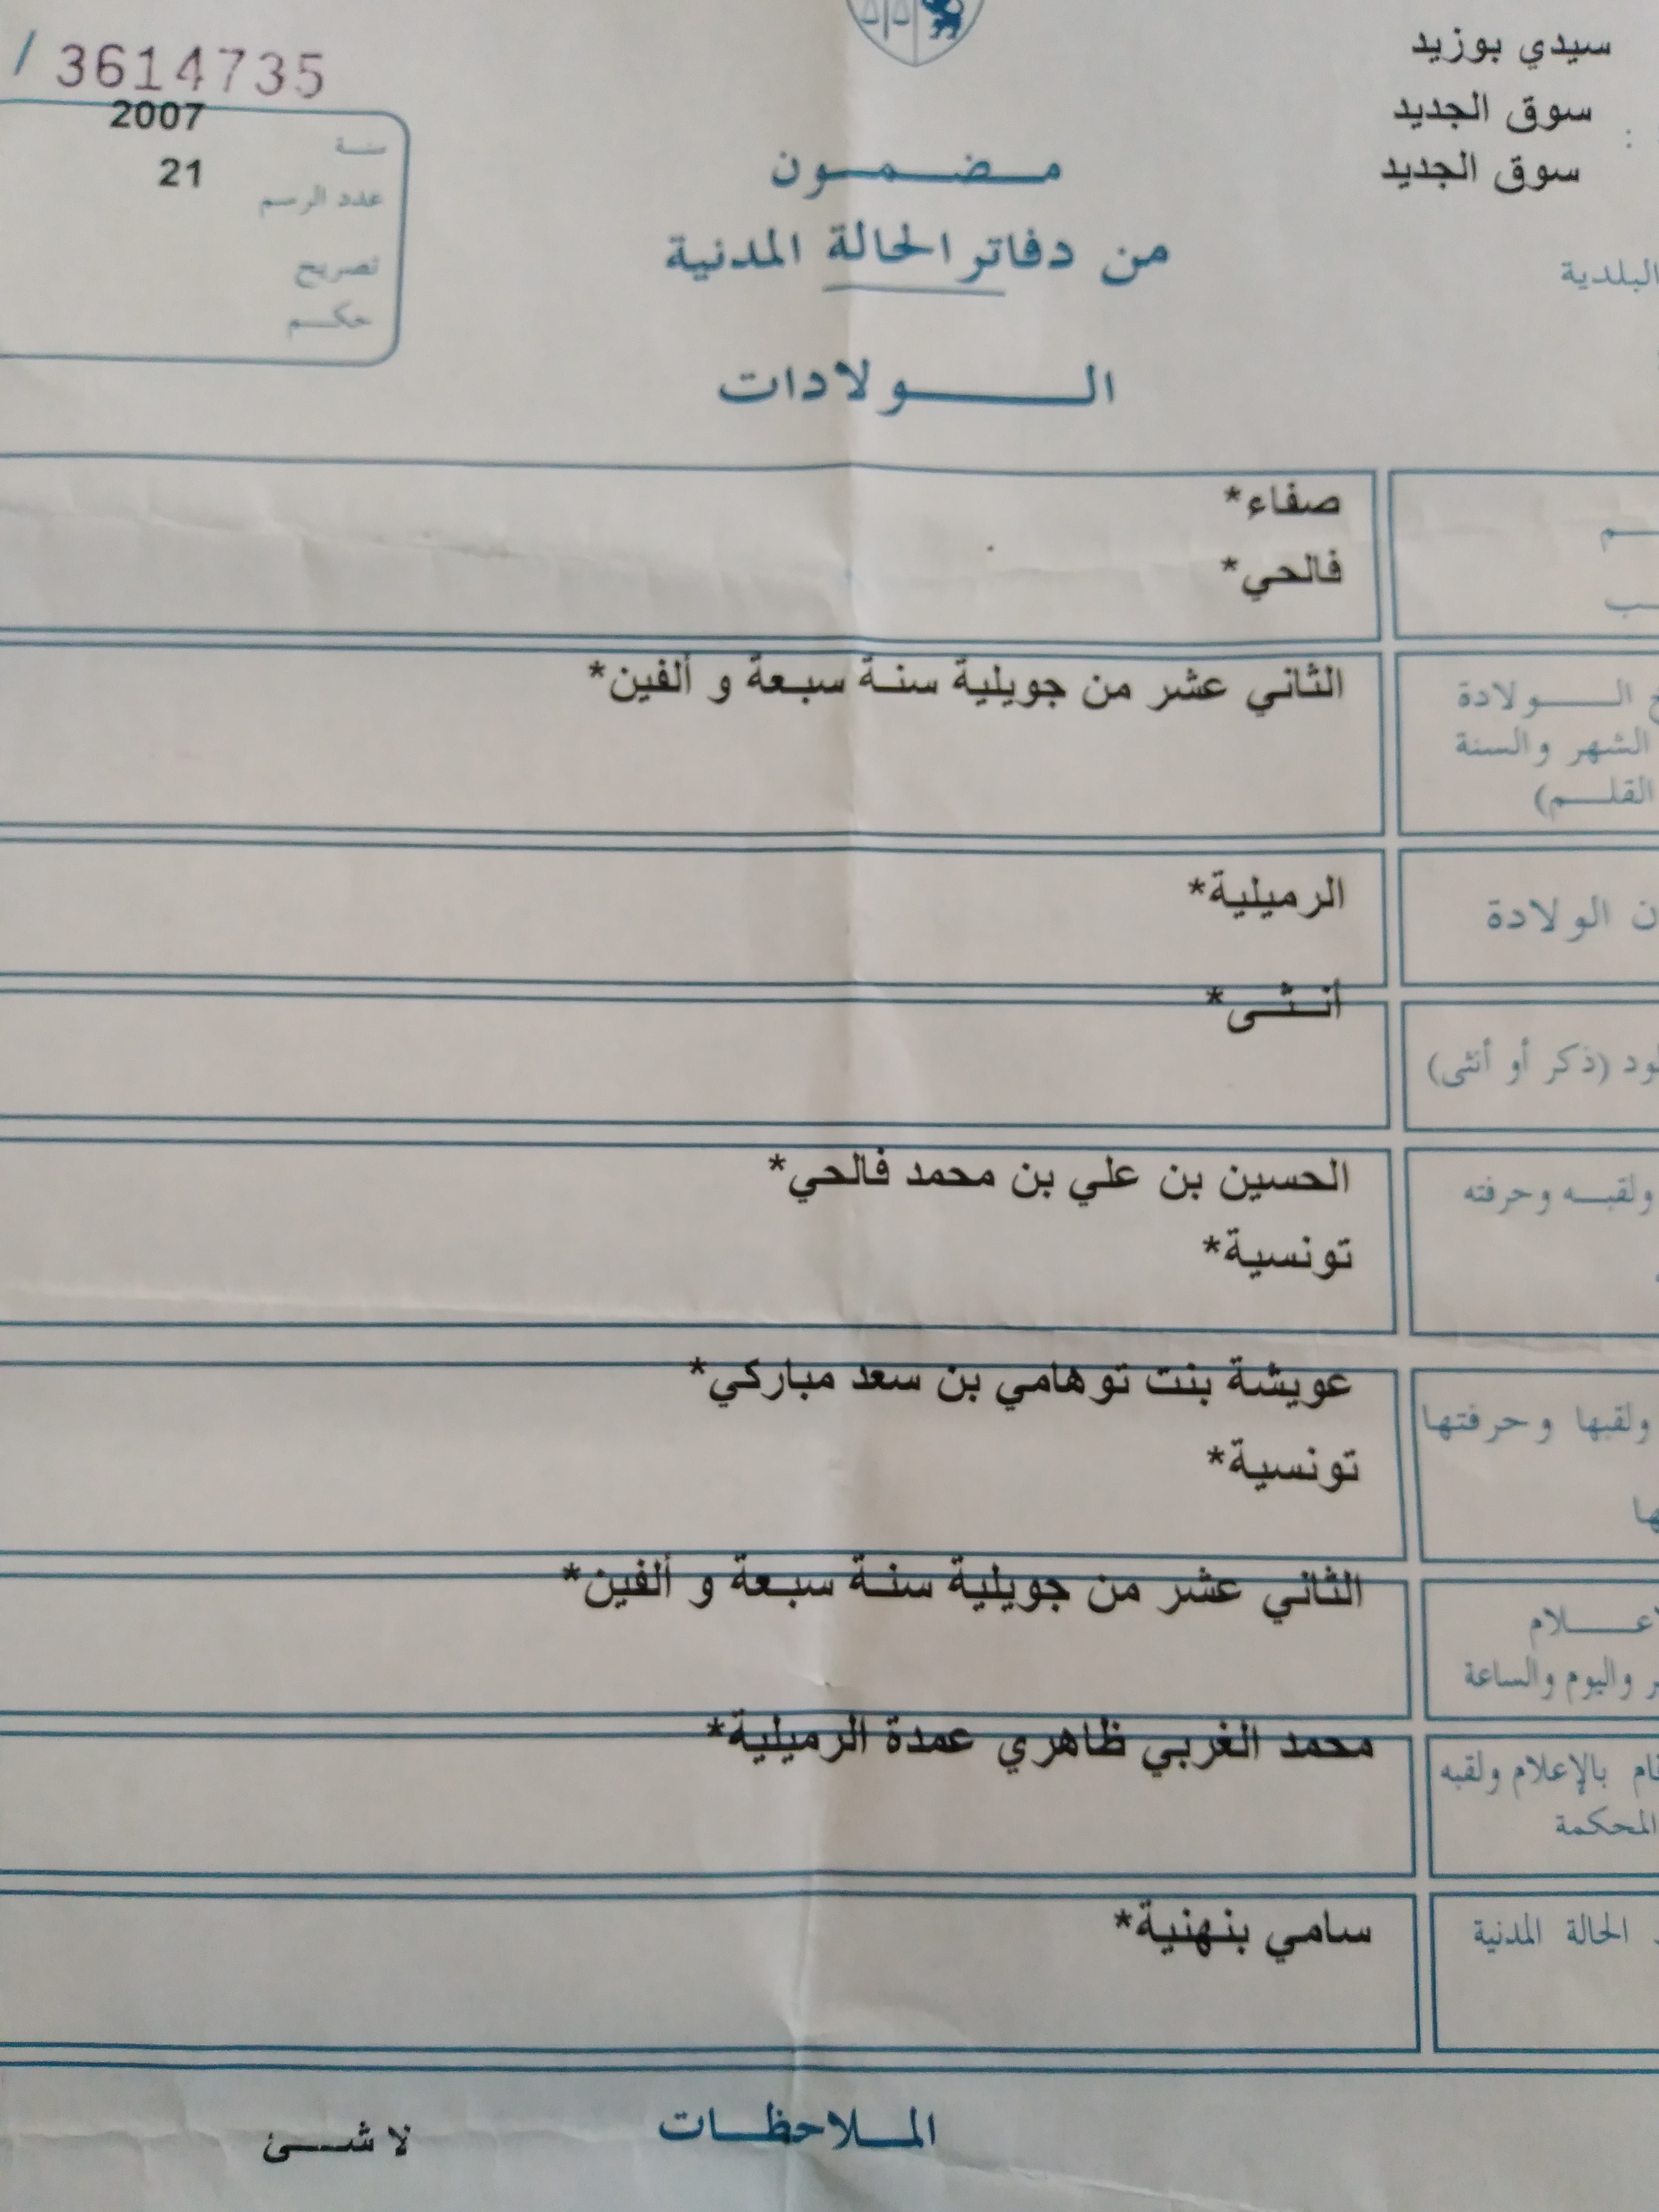 سيدي بوزيد
سوق الجديد
سوق الجديد
البلدية
/ 3614735
سنة 2007
عدد الرسم 21
تصريح
حكم
مضمون
من دفاتر الحالة المدنية
الولادات
صفاء*
فالحي*
الولادة
الشهر والسنة
القلم)
الثاني عشر من جويلية سنة سبعة و ألفين*
الولادة
الرميلية*
(ذكر أو أنثى)
أنثى*
ولقبه وحرفته
الحسين بن علي بن محمد فالحي*
تونسية*
ولقبها وحرفتها
عويشة بنت توهامي بن سعد مباركي*
تونسية*
واليوم والساعة
الثاني عشر من جويلية سنة سبعة و ألفين*
بالإعلام ولقبه
المحكمة
محمد الغربي ظاهري عمدة الرميلية*
الحالة المدنية
سامي بنهنية*
الملاحظات
لا شئ